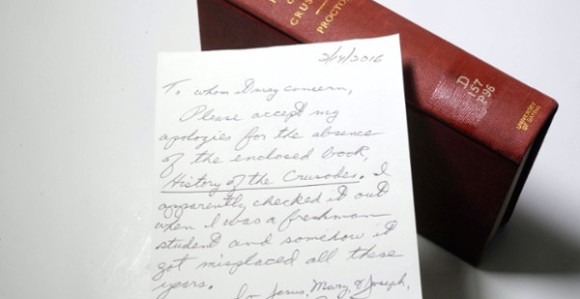 CRUS
PROCTO
D
157
P96
UNIVERSITY
OF DAYTON
2/14/2016
To whom it may concern,
Please accept my
apologies for the absence
of the enclosed book,
History of the Crusades. I
apparently checked it out
when I was a freshman
student and somehow it
got misplaced all these
years.
In Jesus, Mary, & Joseph,